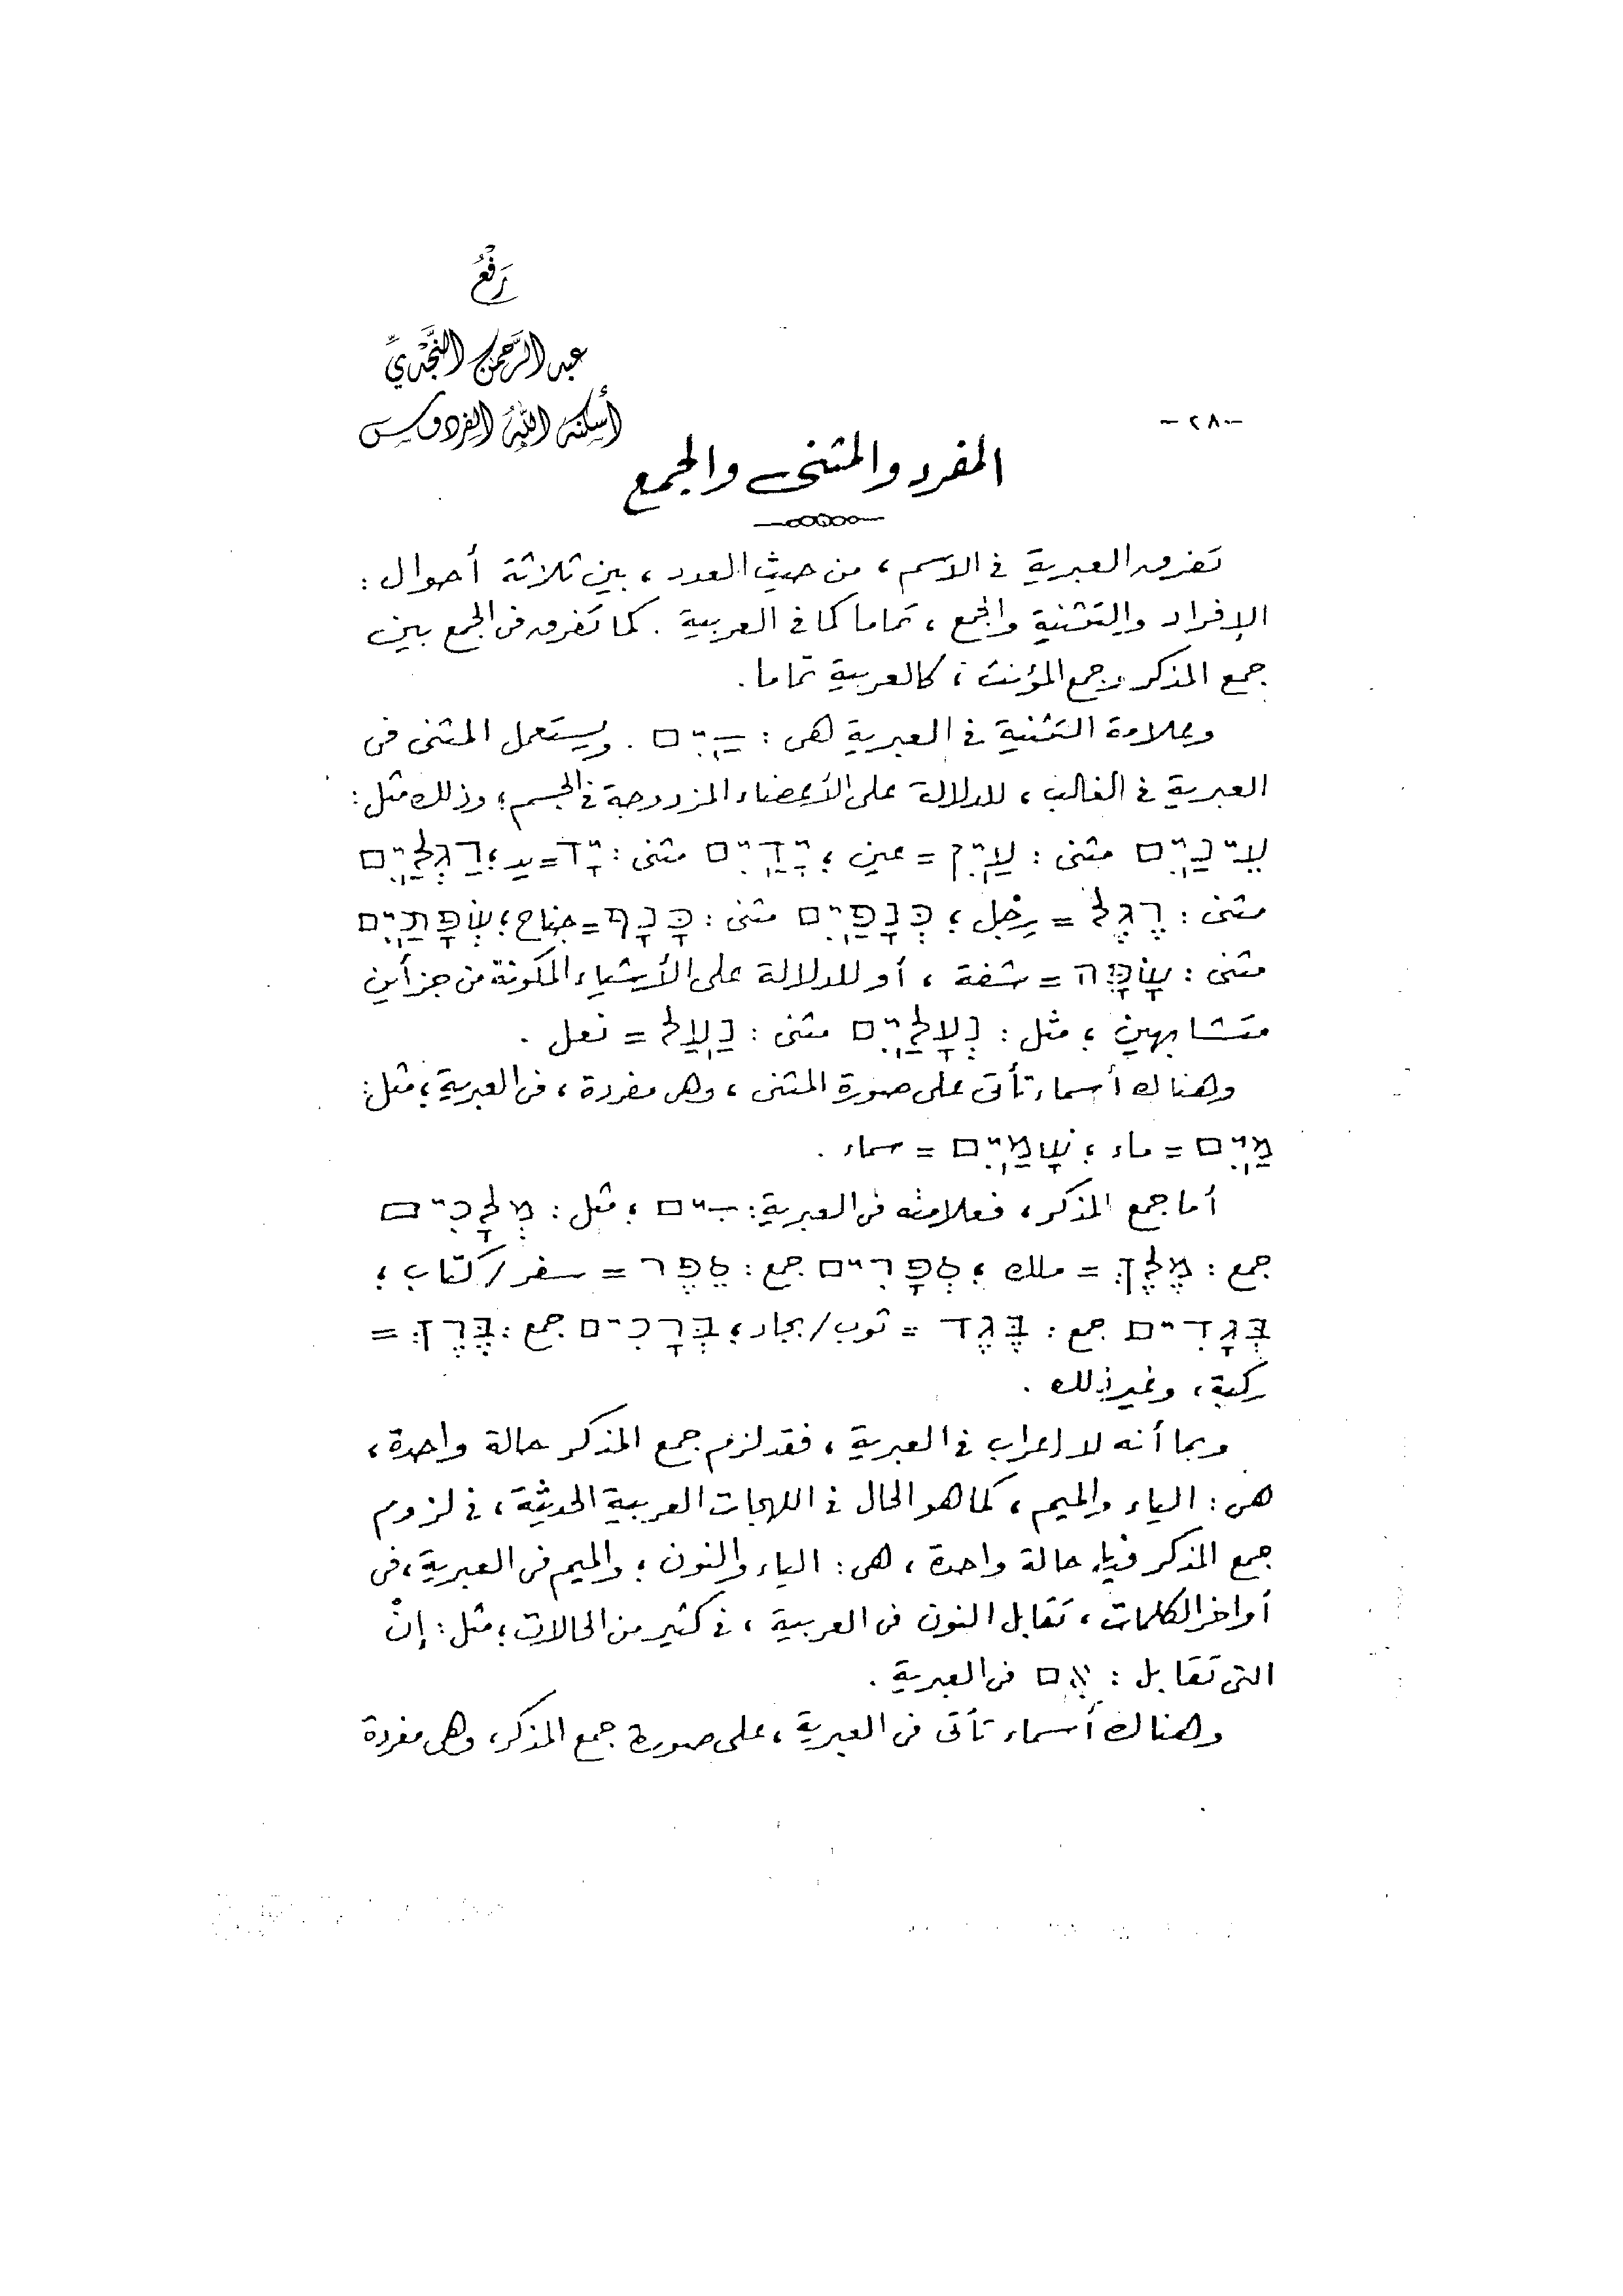 رَفْعُ
عبد الرَّحمن النَّجْديِّ
أسكنه اللهُ الفردوس
-٢٨-
المفرد والمثنى والجمع
تفرق العبرية فى الاسم، من حيث العدد، بين ثلاثة أحوال:
الإفراد والتثنية والجمع، تماما كما فى العربية. كما تفرق فى الجمع بين
جمع المذكر وجمع المؤنث، كالعربية تماما.
وعلامة التثنية فى العبرية هى: ־ַיִם. ويستعمل المثنى فى
العبرية فى الغالب، للدلالة على الأعضاء المزدوجة فى الجسم؛ وذلك مثل:
עֵינַיִם مثنى: עַיִן = عين؛ יָדַיִם مثنى: יָד = يد؛ רַגְלַיִם
مثنى: רֶגֶל = رِجْل؛ כְּנָפַיִם مثنى: כָּנָף = جناح؛ שְׂפָתַיִם
مثنى: שָׂפָה = شفة، أو للدلالة على الأشياء المكونة من جزأين
متشابهين؛ مثل: נְעָלַיִם مثنى: נַעַל = نعل.
وهناك أسماء تأتى على صورة المثنى، وهى مفردة، فى العبرية؛ مثل:
מַיִם = ماء؛ שָׁמַיִם = سماء.
أما جمع المذكر، فعلامته فى العبرية: ־ִים؛ مثل: מְלָכִים
جمع: מֶלֶךְ = ملك؛ סְפָרִים جمع: סֵפֶר = سفر/كتاب؛
בְּגָדִים جمع: בֶּגֶד = ثوب/بجاد؛ בְּרָכִים جمع: בֶּרֶךְ =
ركبة، وغير ذلك.
وبما أنه لا إعراب فى العبرية، فقد لزم جمع المذكر حالة واحدة،
هى: الياء والميم، كما هو الحال فى اللهجات العربية الحديثة، فى لزوم
جمع المذكر فيها حالة واحدة، هى: الياء والنون؛ والميم فى العبرية، فى
أواخر الكلمات، تقابل النون فى العربية، فى كثير من الحالات؛ مثل: إنْ
التى تقابل: אִם فى العبرية.
وهناك أسماء تأتى فى العبرية، على صورة جمع المذكر، وهى مفردة